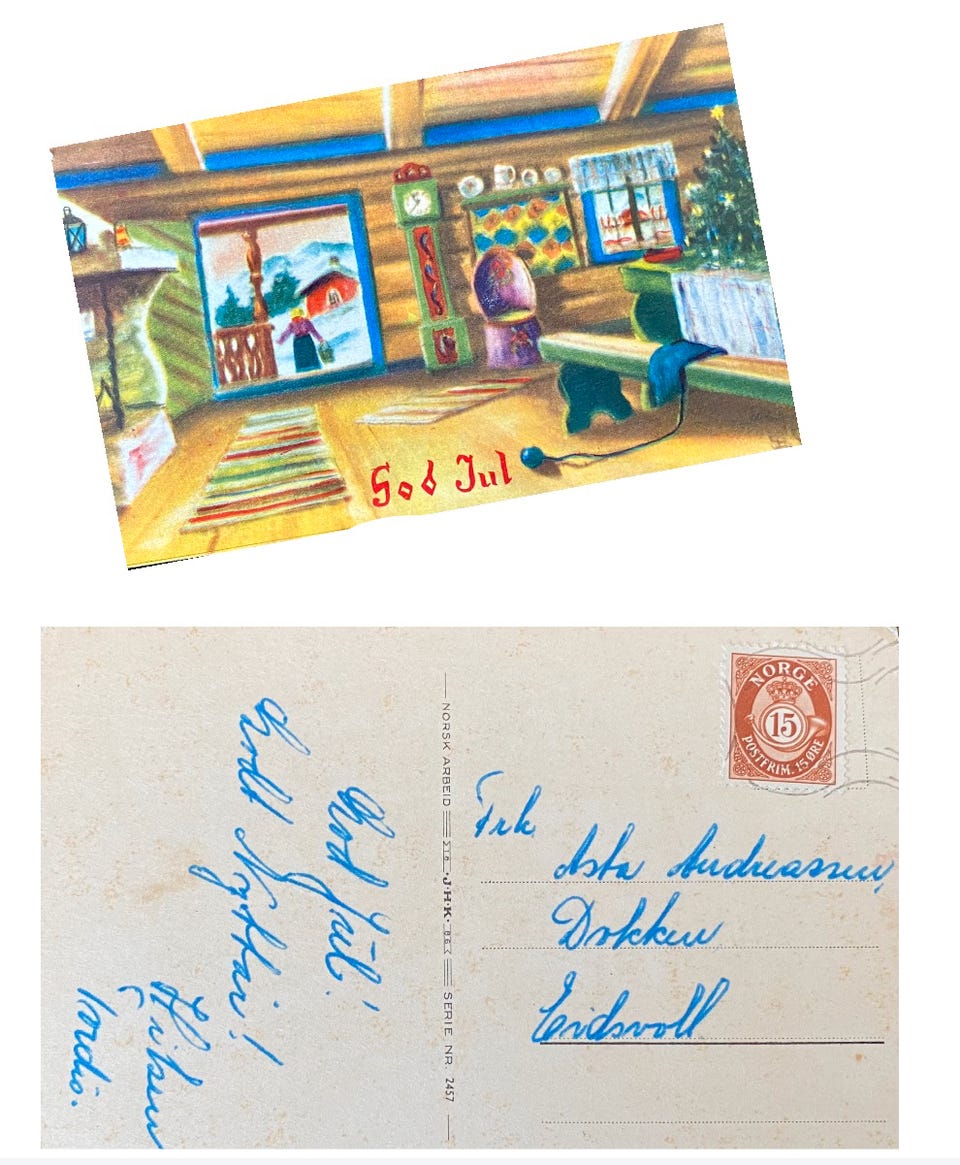 God Jul
God Jul!
Godt Nyttår!
Hilsen
Tordis.
NORSK ARBEID J·H·K· SERIE NR. 2457
NORGE
15
POSTFRIM. 15 ØRE
Frk
Asta Andreassen,
Dokken
Eidsvoll